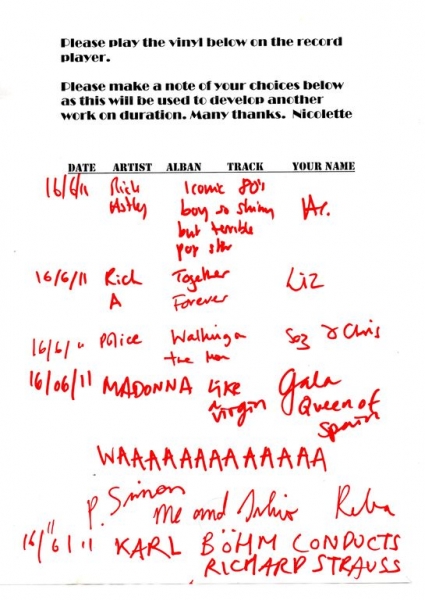 Please play the vinyl below on the record
player.
Please make a note of your choices below
as this will be used to develop another
work on duration. Many thanks. Nicolette
DATE ARTIST ALBAN TRACK YOUR NAME
16/6/11 Rick Iconic 80's
Astley boy so shiny
but terrible
pop star
16/6/11 Rick Together Liz
A Forever
16/6/11 Police Walking on & Chris
the
16/06/11 MADONNA Like Gala
a Queen of
virgin Spain
WAAAAAAAAAAAAA
P. Simon Me and Julio
16/6/11 KARL BÖHM CONDUCTS
RICHARD STRAUSS